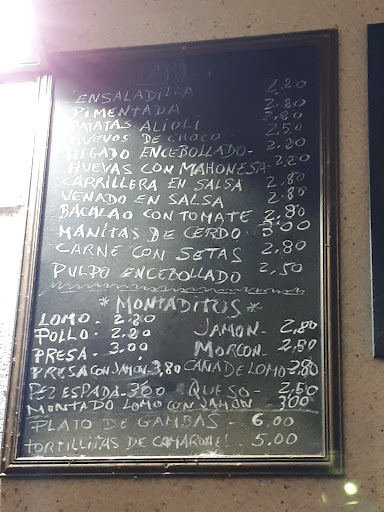 ENSALADILLA 2,20
PIMENTADA 2.80
PATATAS ALIOLI 2.80
HUEVOS DE CHOCO. 2,50
HIGADO ENCEBOLLADO- 2.20
HUEVAS CON MAHONESA- 2.20
CARRILLERA EN SALSA 2,80
VENADO EN SALSA 2.80
BACALAO CON TOMATE 2,80
MANITAS DE CERDO 3,00
CARNE CON SETAS 2,80
PULPO ENCEBOLLADO 2,50
*MONTADITOS*
LOMO- 2.20
POLLO- 2.20 JAMON- 2,80
PRESA- 3,00 MORCON- 2,80
PRESA CON JAMON- 3,80 CAÑA DE LOMO- 2,80
PEZ ESPADA- 3,00 QUESO- 2,50
MONTADO LOMO CON JAMON- 3,00
PLATO DE GAMBAS- 6.00
TORTILLITAS DE CAMARONES- 5.00